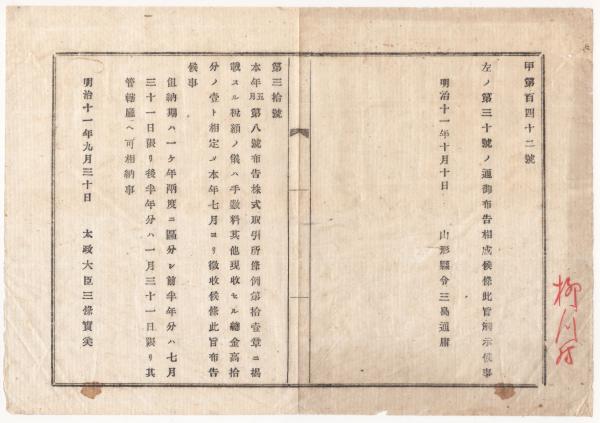 甲第百四十二號
左ノ第三十號ノ通御布告相成候條此旨觸示候事
明治十一年十月十日　山形縣令三島通庸
第三拾號
本年五月第八號布告株式取引所條例第拾壹章ニ揭
載スル税額ノ儀ハ手數料其他現收セル總金高拾
分ノ壹ト相定メ本年七月ヨリ徵收候條此旨布告
候事
但納期ハ一ケ年兩度ニ區分シ前半年分ハ七月
三十一日限リ後半年分ハ一月三十一日限リ其
管轄廳ヘ可相納事
明治十一年九月三十日　太政大臣三條實美
柳川